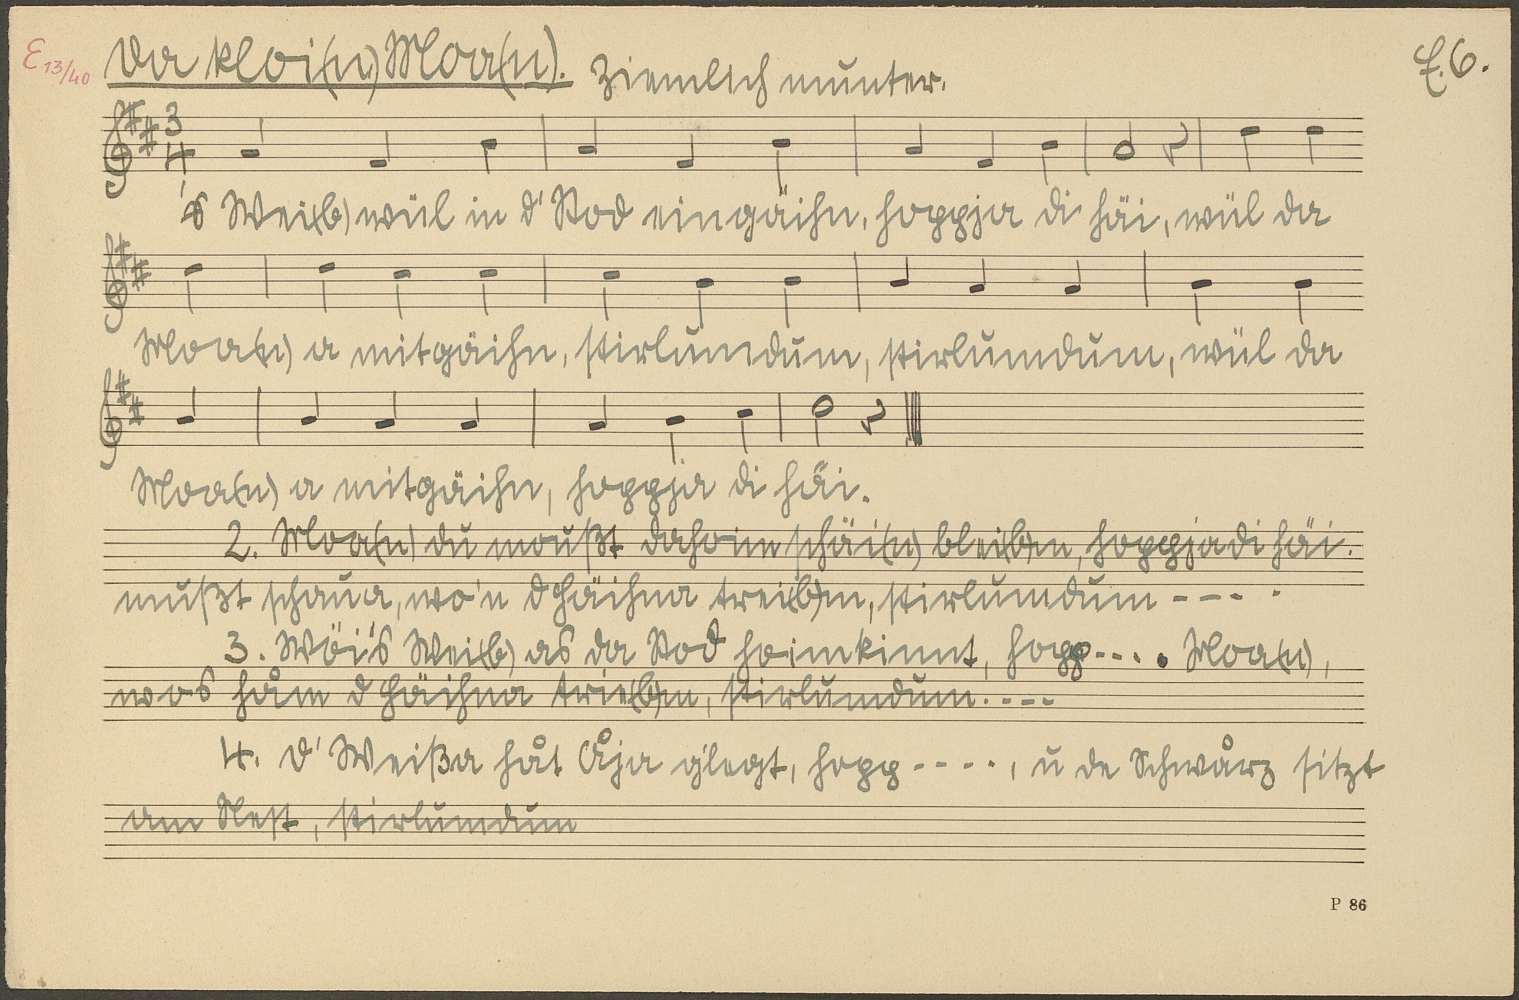 E 13/40 Da kloi(n) Moa(n). Ziemlich munter. E.6.
3
4
's Wei(b) wül in d' Stod eingäihn, hoppja di häi, wül da
Moa(n) a mitgäihn, stirlumdum, stirlumdum, wül da
Moa(n) a mitgäihn, hoppja di häi.
2. Moa(n) du moußt dahoim schäi(n) blei(b)m, hoppja di häi.
mußt schaua, wo'n d Häihna trei(b)m, stirlumdum - - - -
3. Wöi's Wei(b) as da Stod hoimkinnt, hopp - - - . Moa(n),
wos håm d Häihna trie(b)m, stirlumdum. - - -
4. D' Weißa håt Åja g'legt, hopp - - - -, u de Schwårz sitzt
am Nest, stirlumdum
P 86